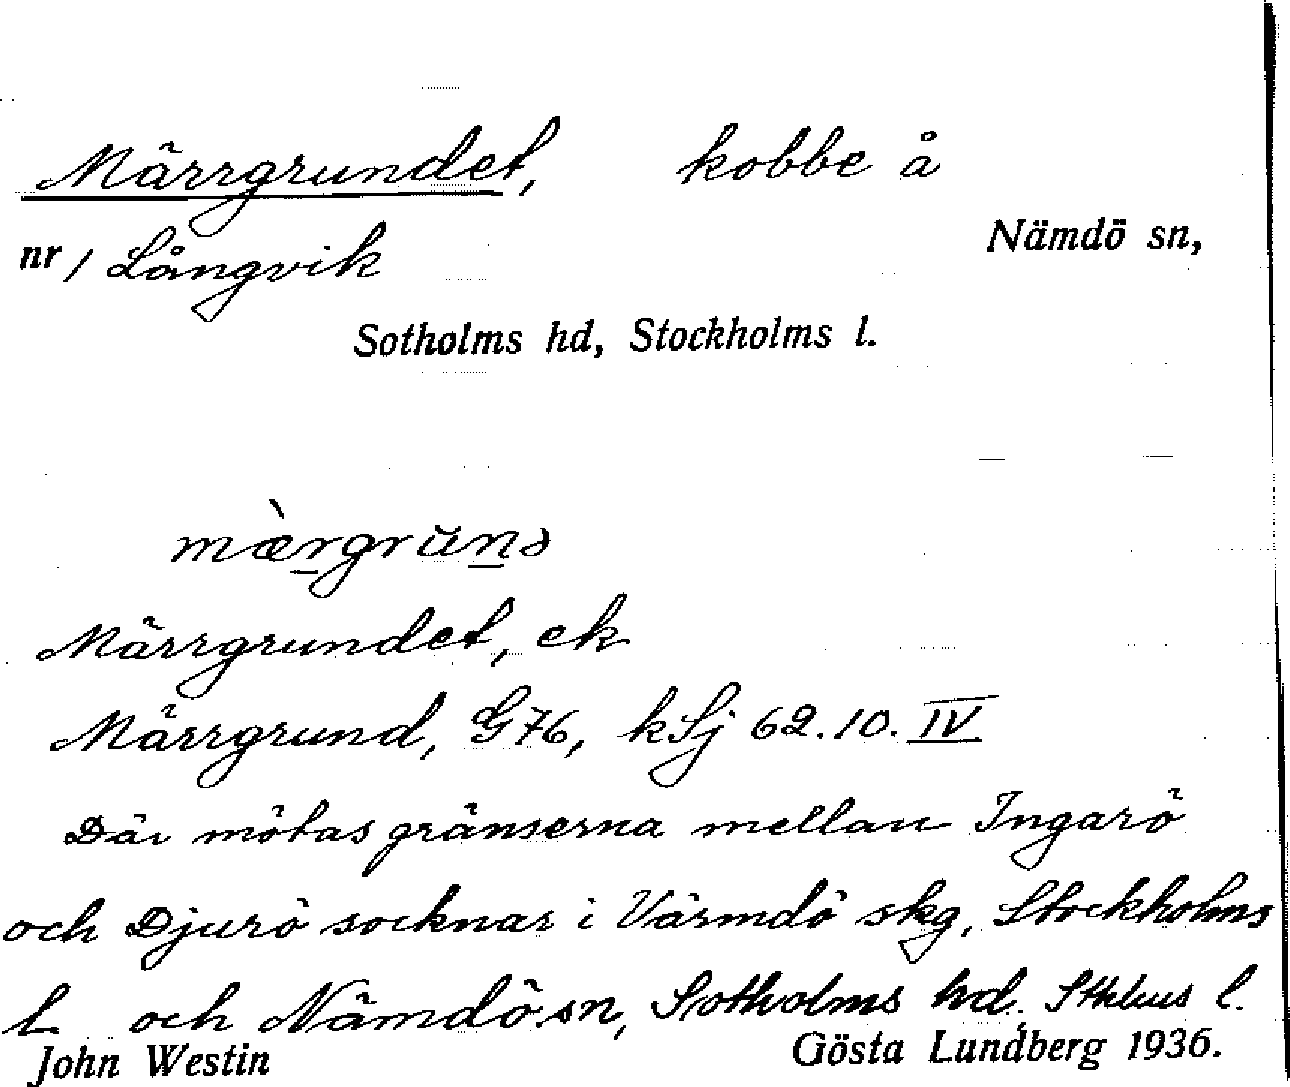 Märrgrundet, kobbe å
nr / Långvik Nämdö sn,
Sotholms hd, Stockholms l.
mæ̀rgrŭnə
Märrgrundet, ek
Märrgrund, G76, kSj 62.10.IV
Där mötas gränserna mellan Ingarö
och Djurö socknar i Värmdö skg, Stockholms
l. och Nämdö sn, Sotholms hd, Sthlms l.
John Westin Gösta Lundberg 1936.